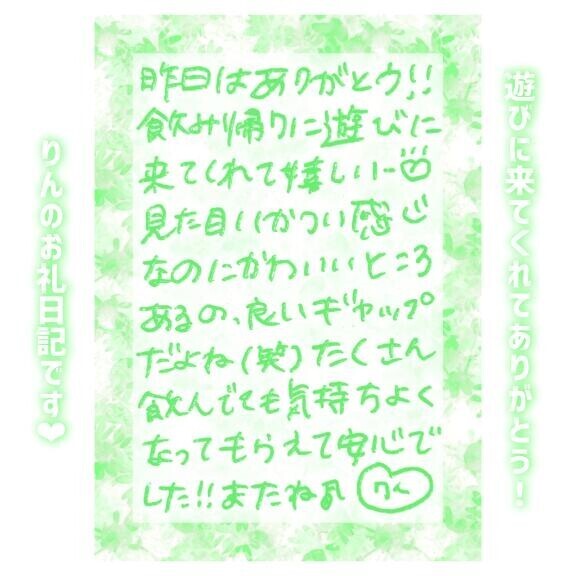 遊びに来てくれてありがとう!
昨日はありがとウ!!
飲み帰りに遊びに
来てくれて嬉しい
見た目いかつい感じ
なのにかわいいところ
あるの、良いギャップ
だよね(笑)たくさん
飲んでても気持ちよく
なってもらえて安心で
した!!またね♪ りん
りんのお礼日記です❤